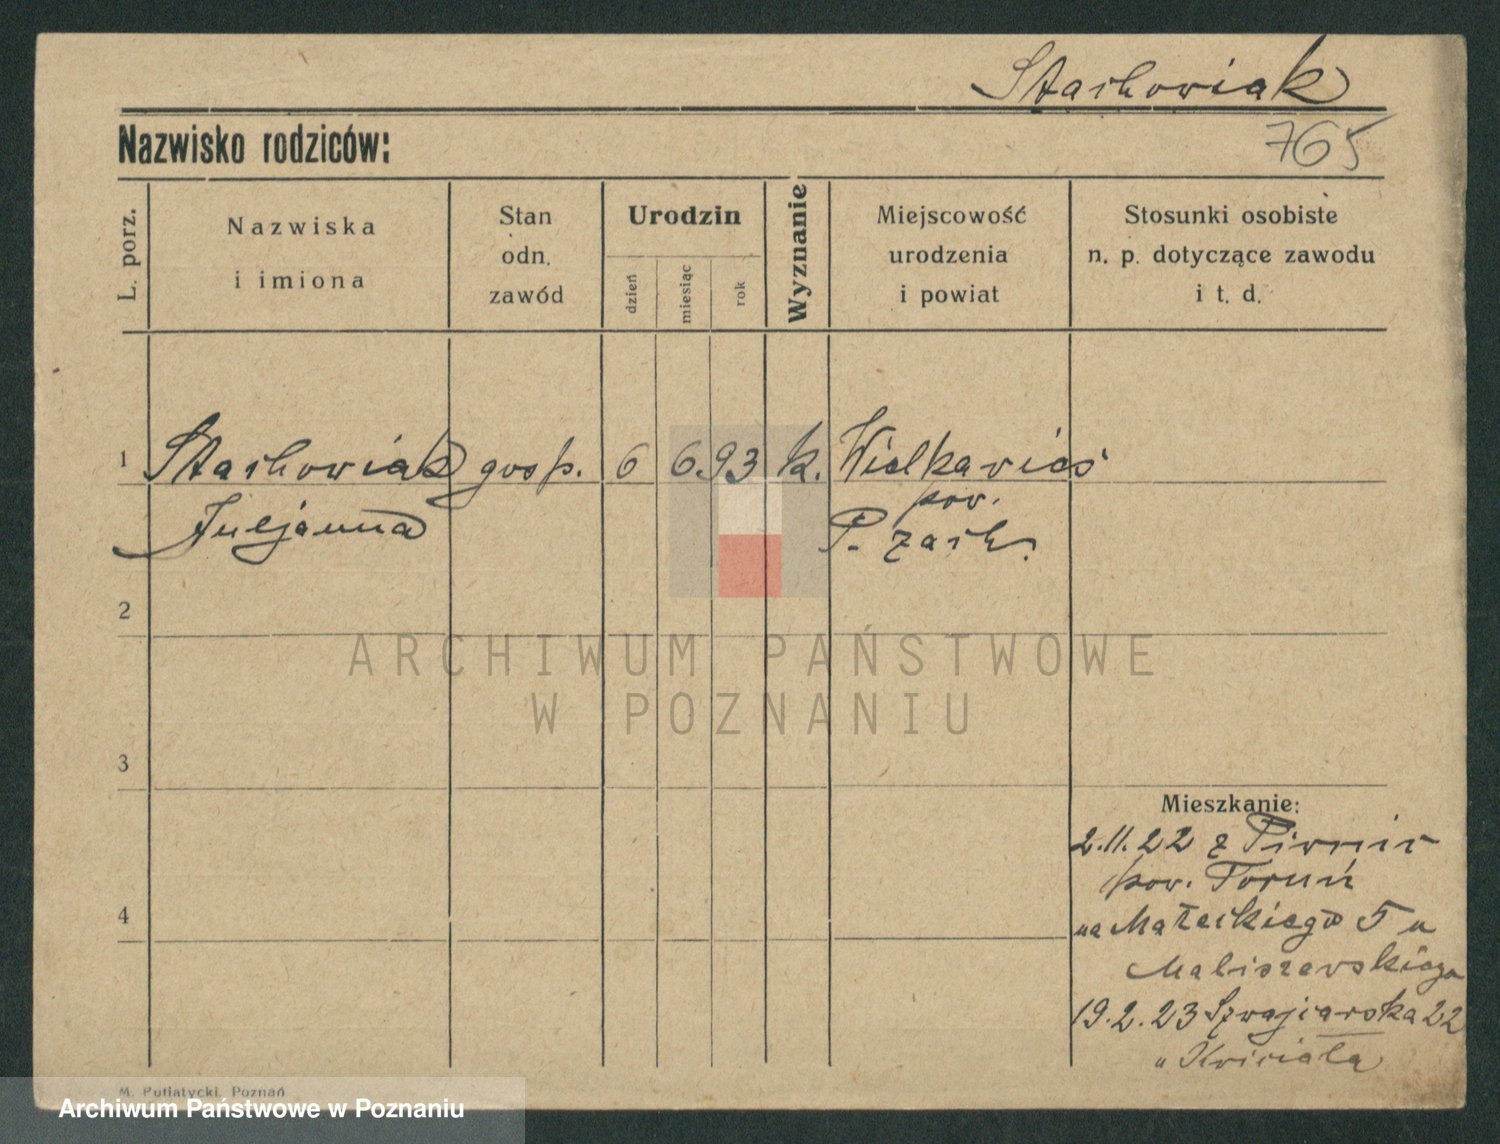 Stachowiak
Nazwisko rodziców:
765
L. porz.
Nazwiska
i imiona
Stan
odn.
zawód
Urodzin
dzień
miesiąc
rok
Wyznanie
Miejscowość
urodzenia
i powiat
Stosunki osobiste
n. p. dotyczące zawodu
i t. d.
1 Stachowiak gosp. 6 6. 93 k. Wielkawieś
Juljanna
pow.
P. zach.
2
3
4
Mieszkanie:
2.11.22 z
pow. Toruń
na Małeckiego 5 u
Maliszewskiego
19.2.23 Szwajcarska 22
u
M. Putiatycki, Poznań
ARCHIWUM PAŃSTWOWE
W POZNANIU
Archiwum Państwowe w Poznaniu